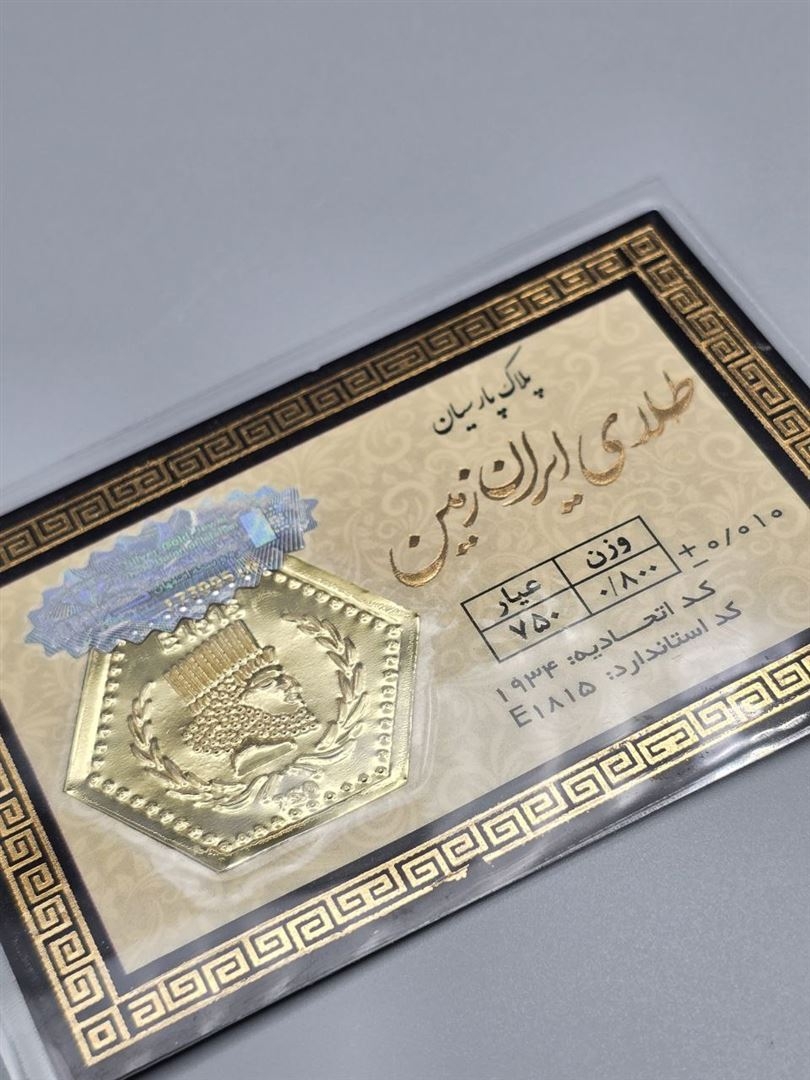 پلاک پارسیان
طلای ایران زمین
وزن عیار
۰/۸۰۰ ۷۵۰
±۰/۰۱۰
کد اتحادیه: ۱۹۳۴
کد استاندارد: E۱۸۱۵
E1815